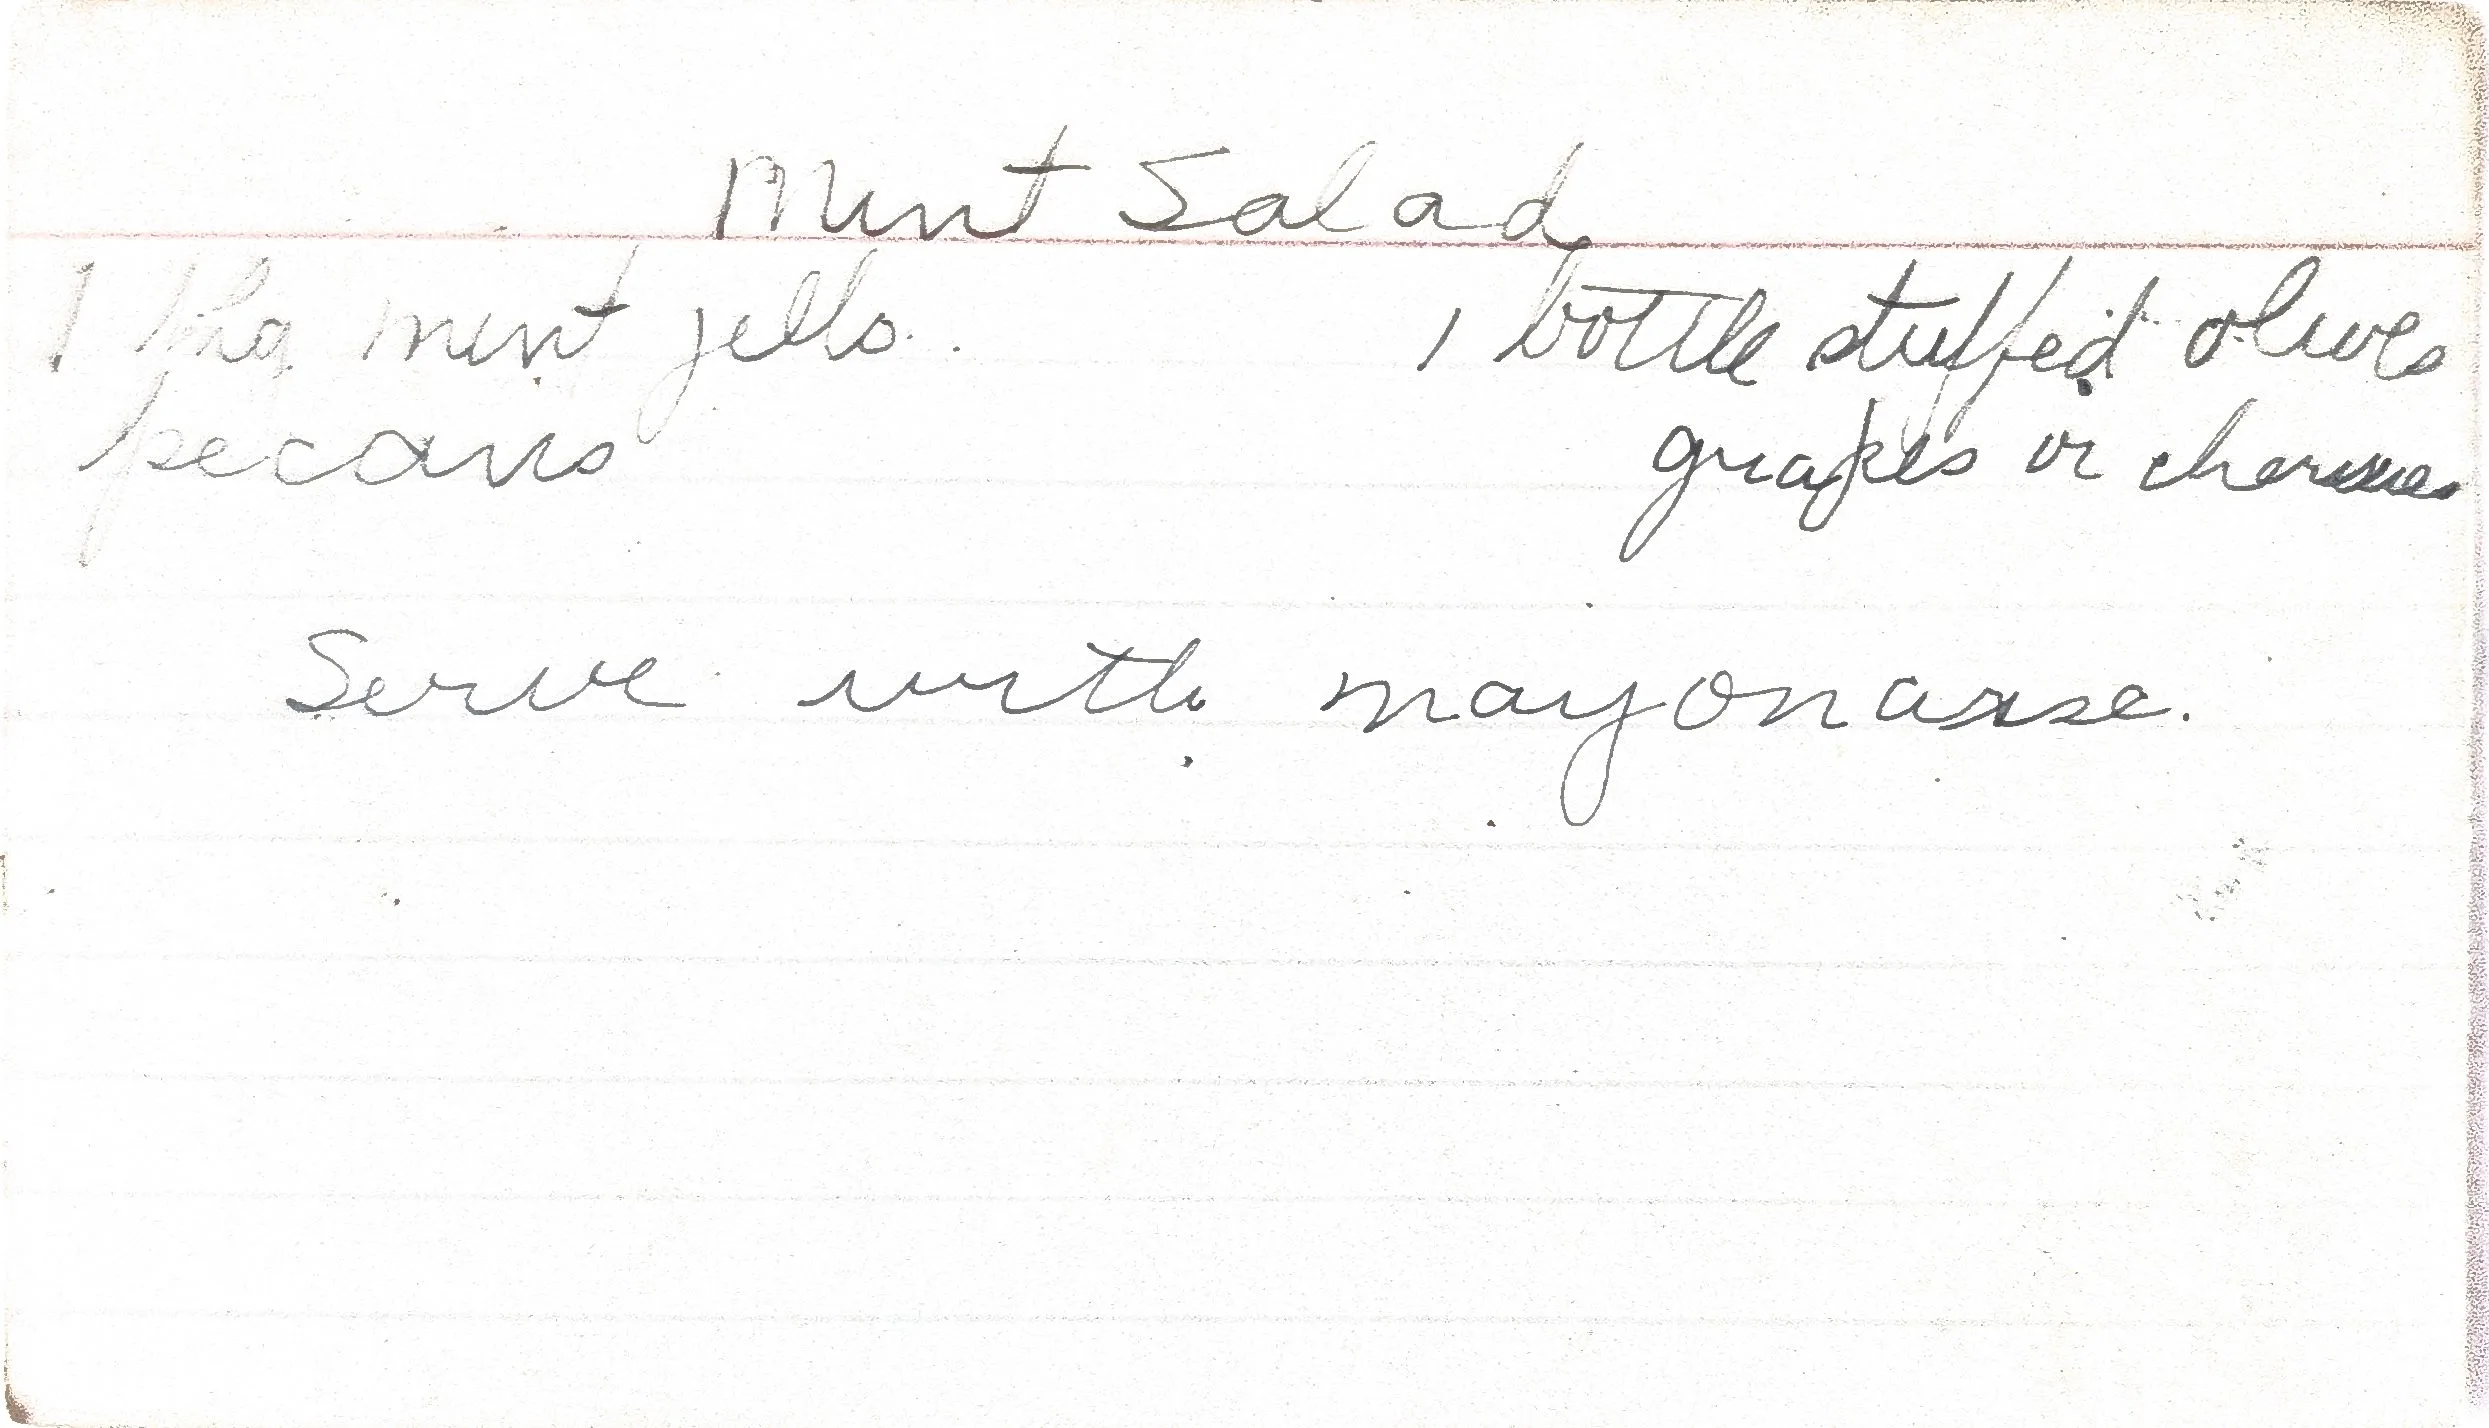 Mint Salad
1 pkg mint jello. 1 bottle stuffed olives
pecans grapes or cherries
Serve with mayonaise.